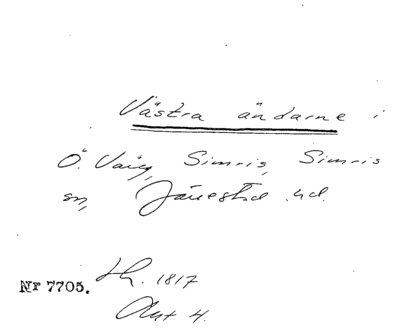 Västra ändarne i
Ö. Vång, Simris, Simris
sn, Järrestad hd.
Lh. 1817
Nr 7705.
Akt 4.